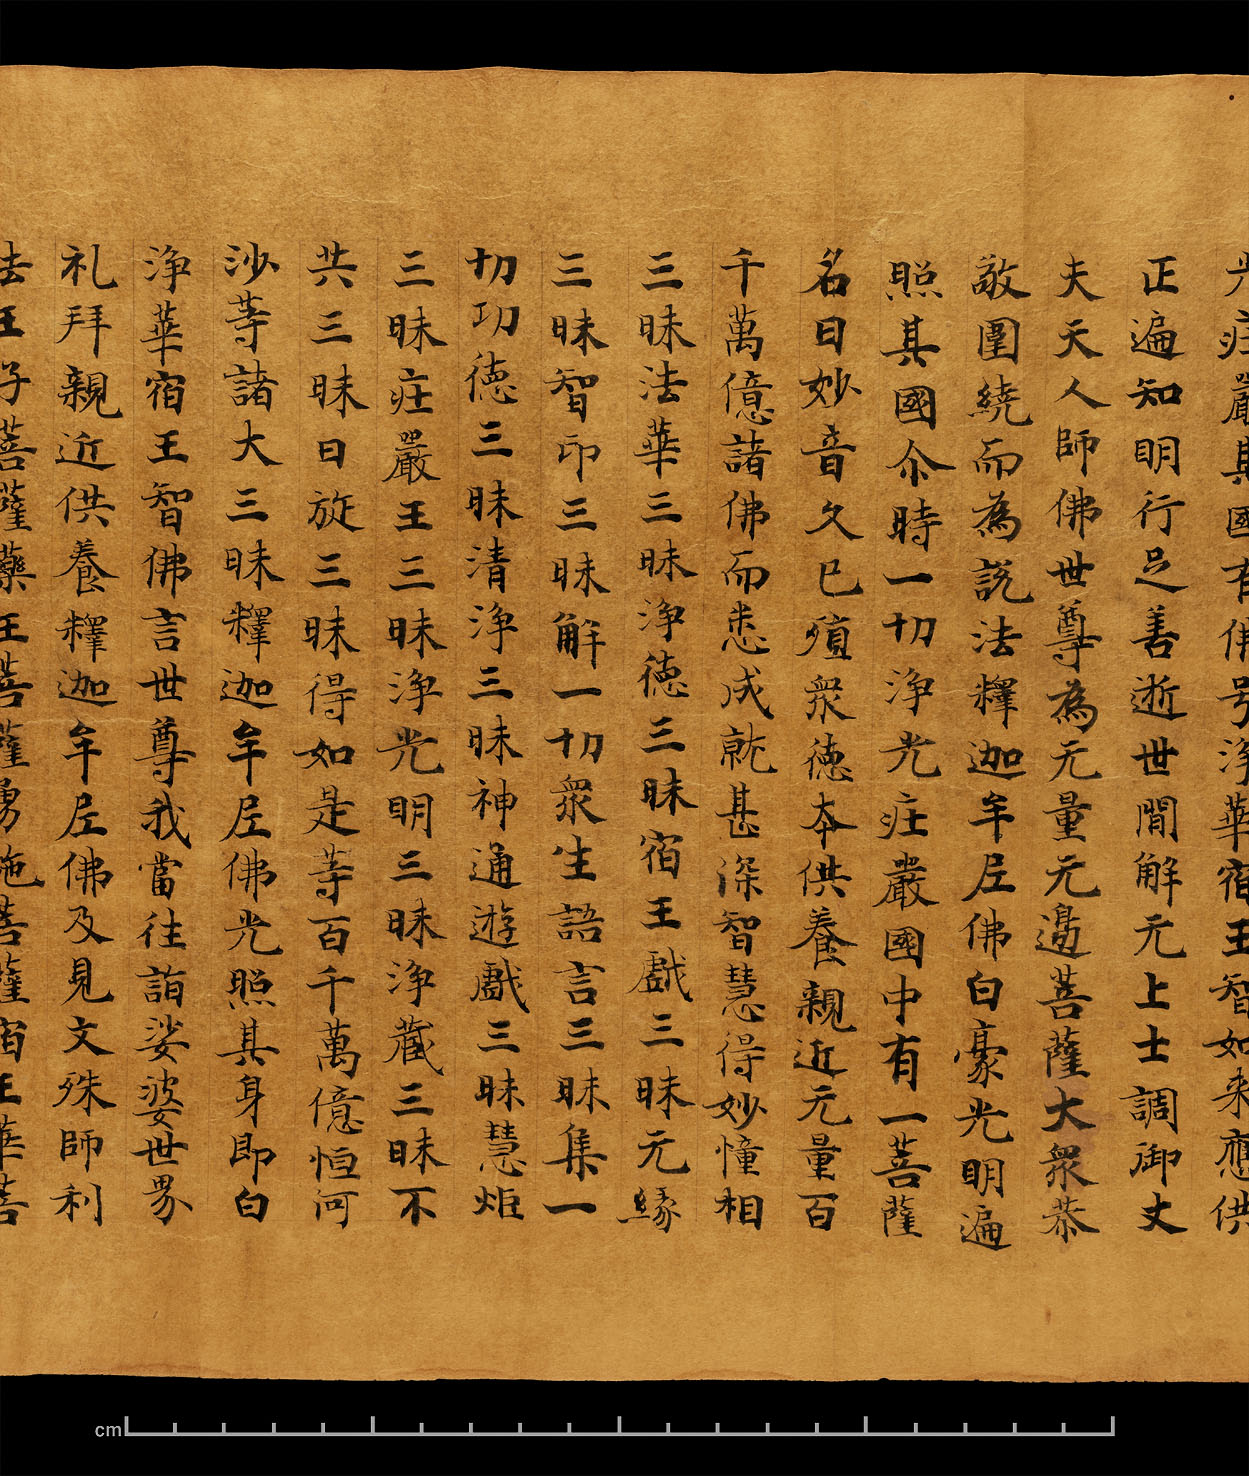 光庄嚴其國有佛号淨華宿王智如来應供
正遍知明行足善逝世間解无上士調御丈
夫天人師佛世尊為无量无邊菩薩大衆恭
敬圍繞而為說法釋迦牟尼佛白豪光明遍
照其國尒時一切淨光庄嚴國中有一菩薩
名曰妙音久已殖衆徳本供養親近无量百
千萬億諸佛而悉成就甚深智慧得妙憧相
三昧法華三昧淨徳三昧宿王戲三昧无緣
三昧智印三昧解一切衆生語言三昧集一
切功徳三昧清淨三昧神通遊戲三昧慧炬
三昧庄嚴王三昧淨光明三昧淨藏三昧不
共三昧日旋三昧得如是等百千萬億恒河
沙等諸大三昧釋迦牟尼佛光照其身即白
淨華宿王智佛言世尊我當往詣娑婆世界
礼拜親近供養釋迦牟尼佛及見文殊師利
法王子菩薩藥王菩薩勇施菩薩宿王華菩
cm